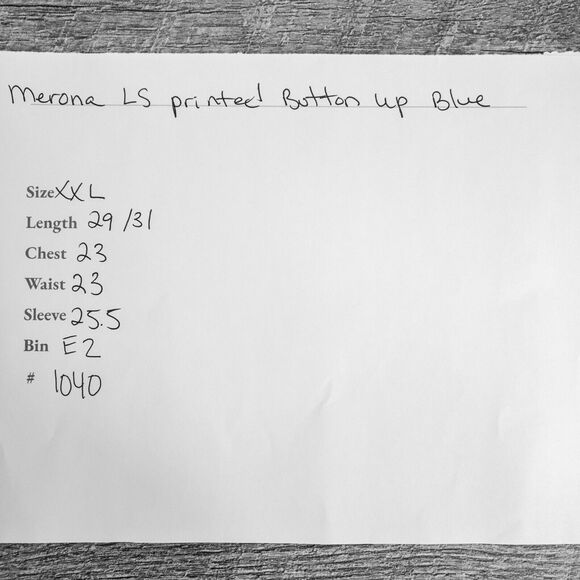 Merona LS printed Button up Blue
Size XXL
Length 29/31
Chest 23
Waist 23
Sleeve 25.5
Bin E2
# 1040